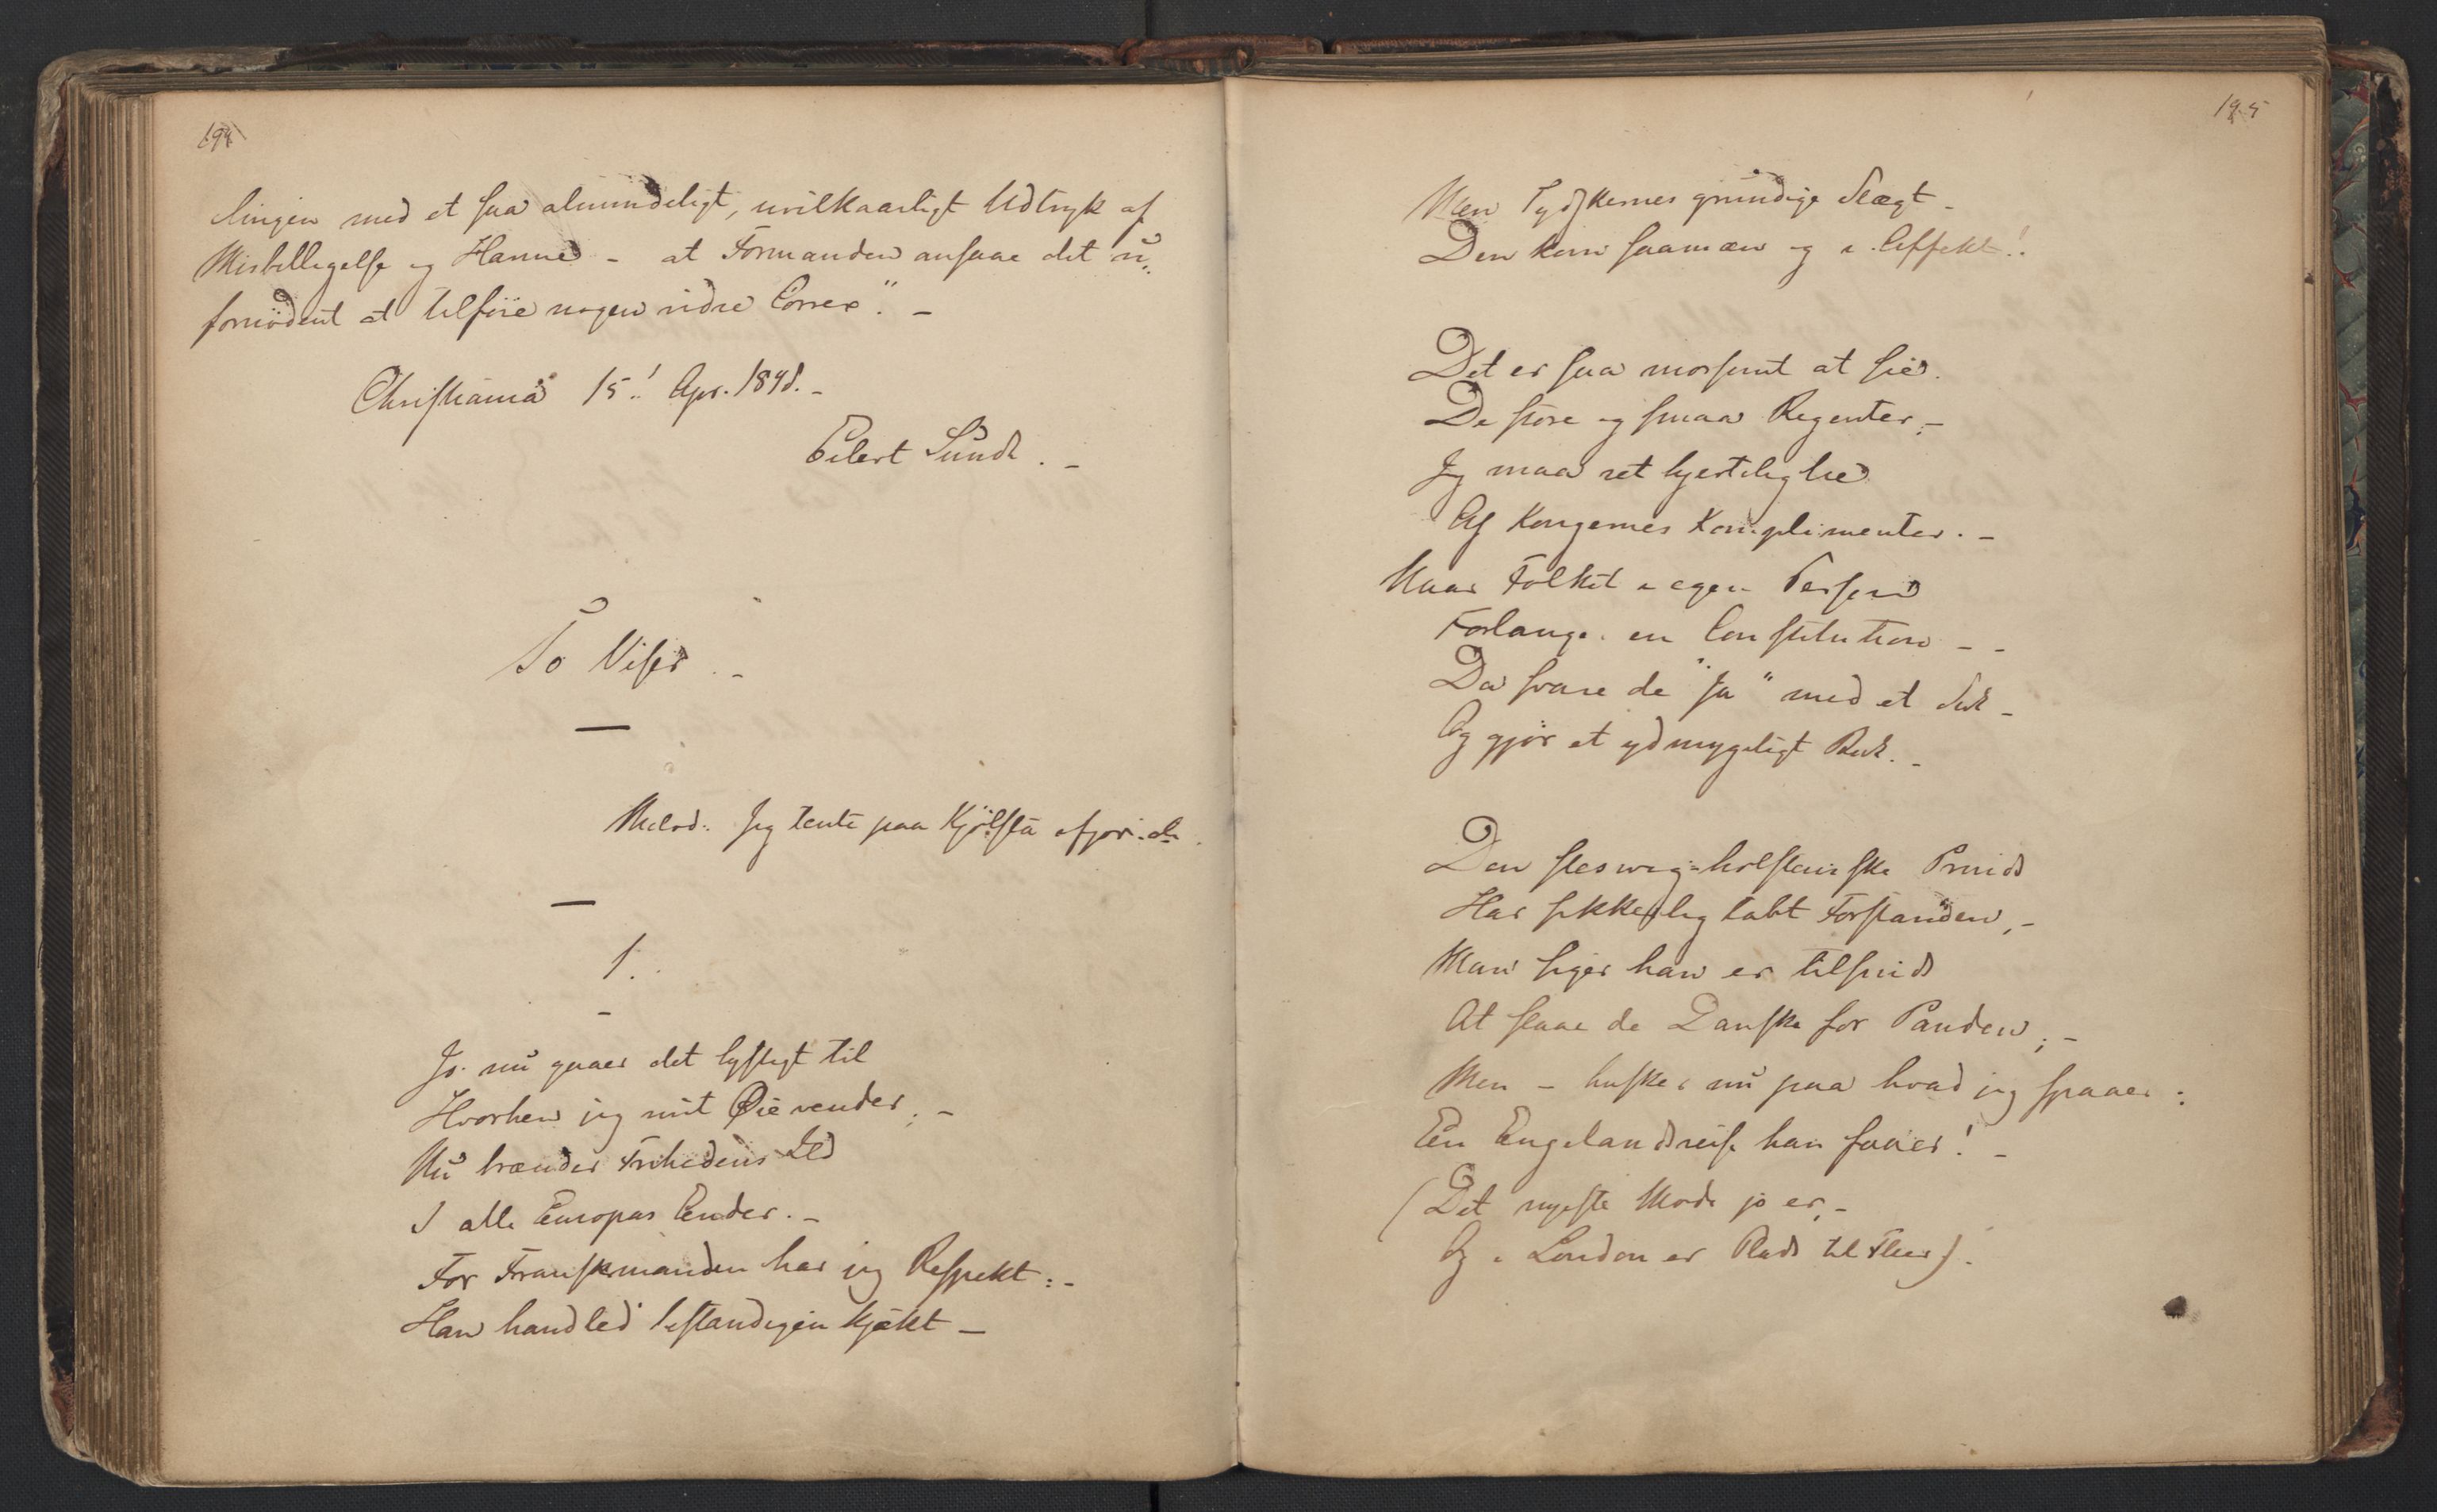 194
lingen med et saa almindeligt, uvilkaarligt Udtryk af
Misbilligelse og Harme - at Formanden ansaae det u-
fornödent at tilföie nogen vidre Correx". -
Christiania 15.! Apr. 1848. -
Eilert Sundt. -
To Viser. -
Melod: Jeg tente paa Kjölsta ifjor. etc.
1.
Jo. nu gaaer det lystigt til
Hvorhen jeg mit Øie vender; -
Nu brænder Frihedens Ild
I alle Europas Ender. -
For Franskmanden har jeg Respekt: -
Han handled' bestandigen kjækt -
195
Men Tydskernes grundige Slægt -
Den kom saamæn og i Affekt!
Det er saa morsomt at see
De store og smaa Regenter; -
Jeg maa ret hjertelig lee
Af Kongernes Komplimenter. -
Naar Folket i egen Person
Forlange en Constitution - -
Da svare de "Ja" med et Suk -
Og gjör et ydmygeligt Buk. -
Den slesvig-holstenske Prinds
Har sikkerlig tabt Forstanden, -
Man siger han er tilsinds
At slaae de Danske for Panden; -
Men - husker nu paa hvad jeg spaaer:
En Engelandsreise han faaer! -
(Det nyeste Mode jo er, -
Og i London er Plads til Fleer).